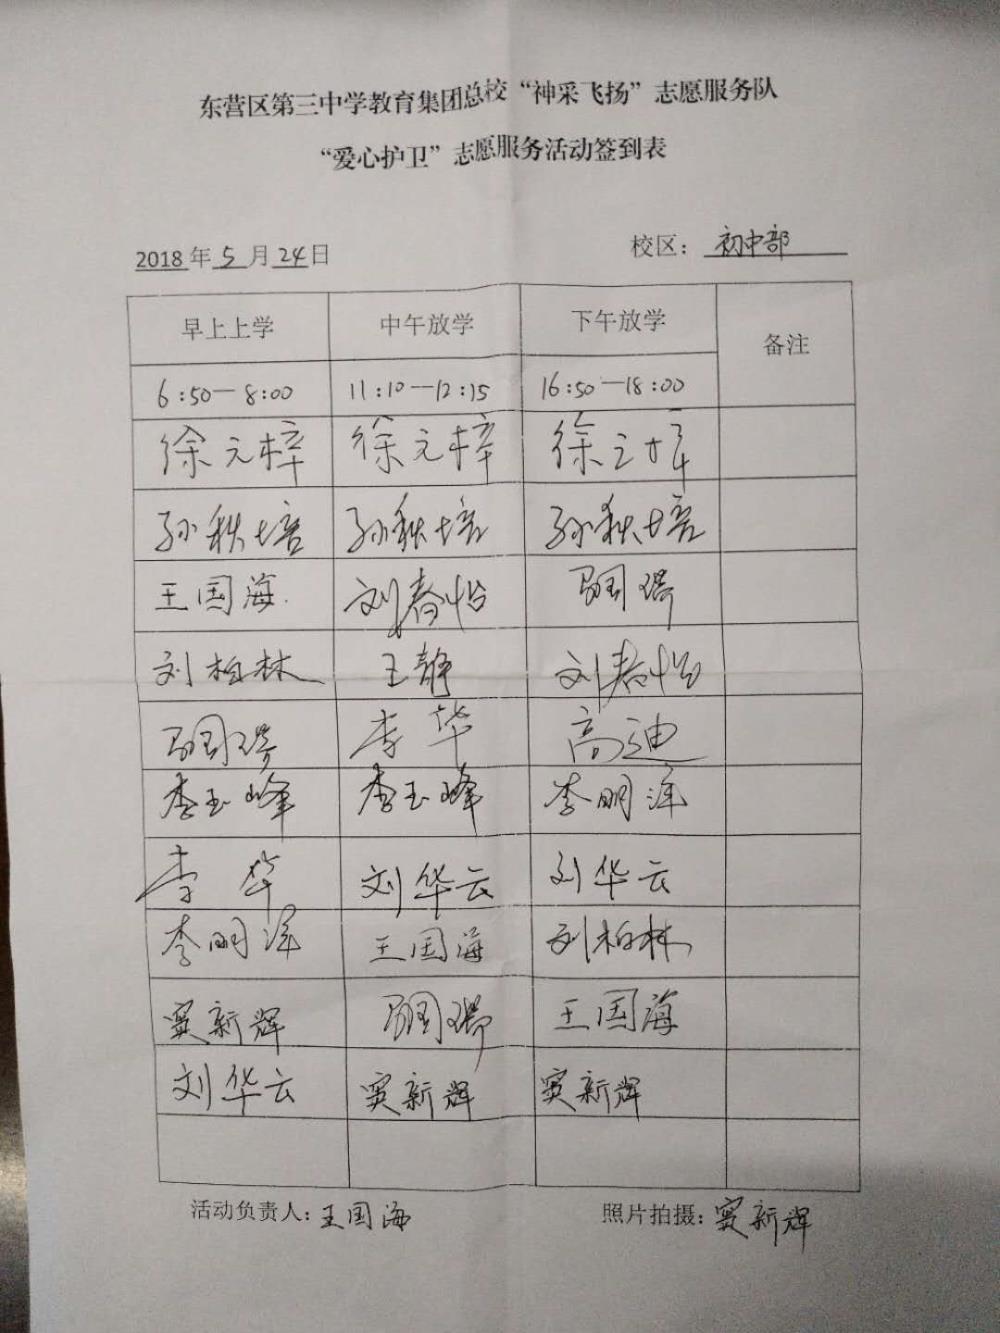 东营区第三中学教育集团总校“神采飞扬”志愿服务队
“爱心护卫”志愿服务活动签到表
2018年5月24日 校区：初中部
早上上学 中午放学 下午放学 备注
6:50—8:00 11:10—12:15 16:50—18:00
徐元梓 徐元梓 徐元梓
孙秋培 孙秋培 孙秋培
王国海 刘春怡
刘柏林 王静 刘春怡
李华 高迪
李玉峰 李玉峰 李明洋
李华 刘华云 刘华云
李明洋 王国海 刘柏林
窦新辉 王国海
刘华云 窦新辉 窦新辉
活动负责人：王国海 照片拍摄：窦新辉